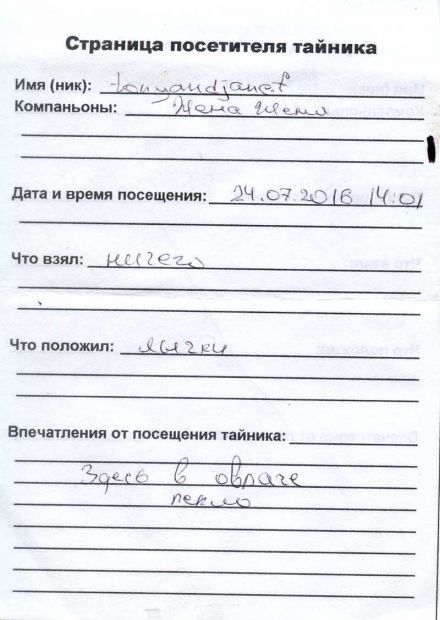 Страница посетителя тайника
Имя (ник): tonyandjanet
Компаньоны: Жена Женя
Дата и время посещения: 24.07.2016 14:01
Что взял: ничего
Что положил: лычки
Впечатления от посещения тайника:
Здесь в овраге
пекло